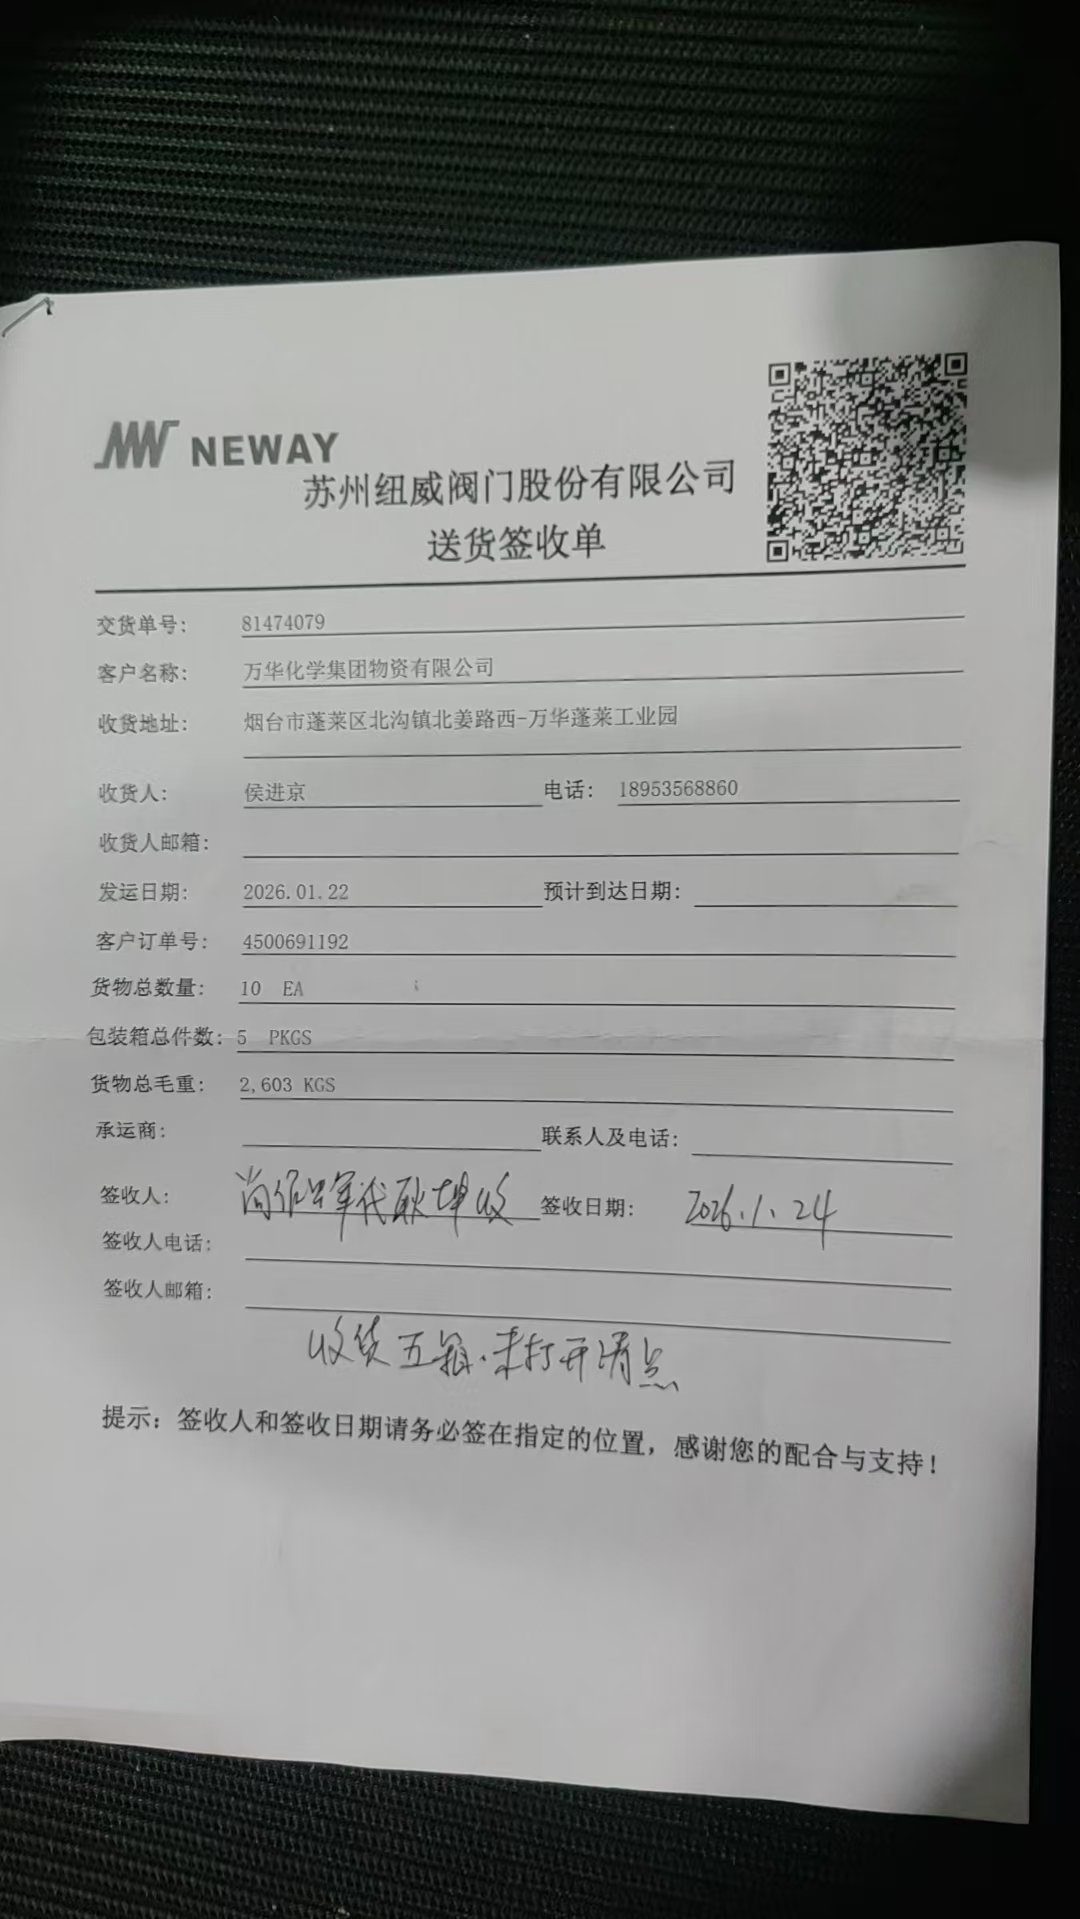 NEWAY
苏州纽威阀门股份有限公司
送货签收单
交货单号: 81474079
客户名称: 万华化学集团物资有限公司
收货地址: 烟台市蓬莱区北沟镇北姜路西-万华蓬莱工业园
收货人: 侯进京 电话: 18953568860
收货人邮箱:
发运日期: 2026.01.22 预计到达日期:
客户订单号: 4500691192
货物总数量: 10 EA
包装箱总件数: 5 PKGS
货物总毛重: 2,603 KGS
承运商: 联系人及电话:
签收人: 代耿坤收 签收日期: 2026.1.24
签收人电话:
签收人邮箱:
收货五箱.未打开清点
提示: 签收人和签收日期请务必签在指定的位置, 感谢您的配合与支持!